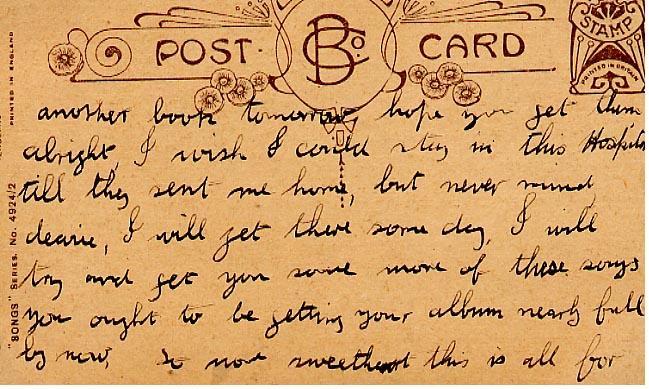 POST CARD
B Co.
STAMP
PRINTED IN BRITAIN
PRINTED IN ENGLAND
"SONGS" SERIES. No. 4924/2
another book tomorrow, hope you get them
alright, I wish I could stay in this Hospital
till they sent me home, but never mind,
dearie, I will get there some day, I will
try and get you some more of these songs
you ought to be getting your album nearly full
by now, so now sweetheart this is all for